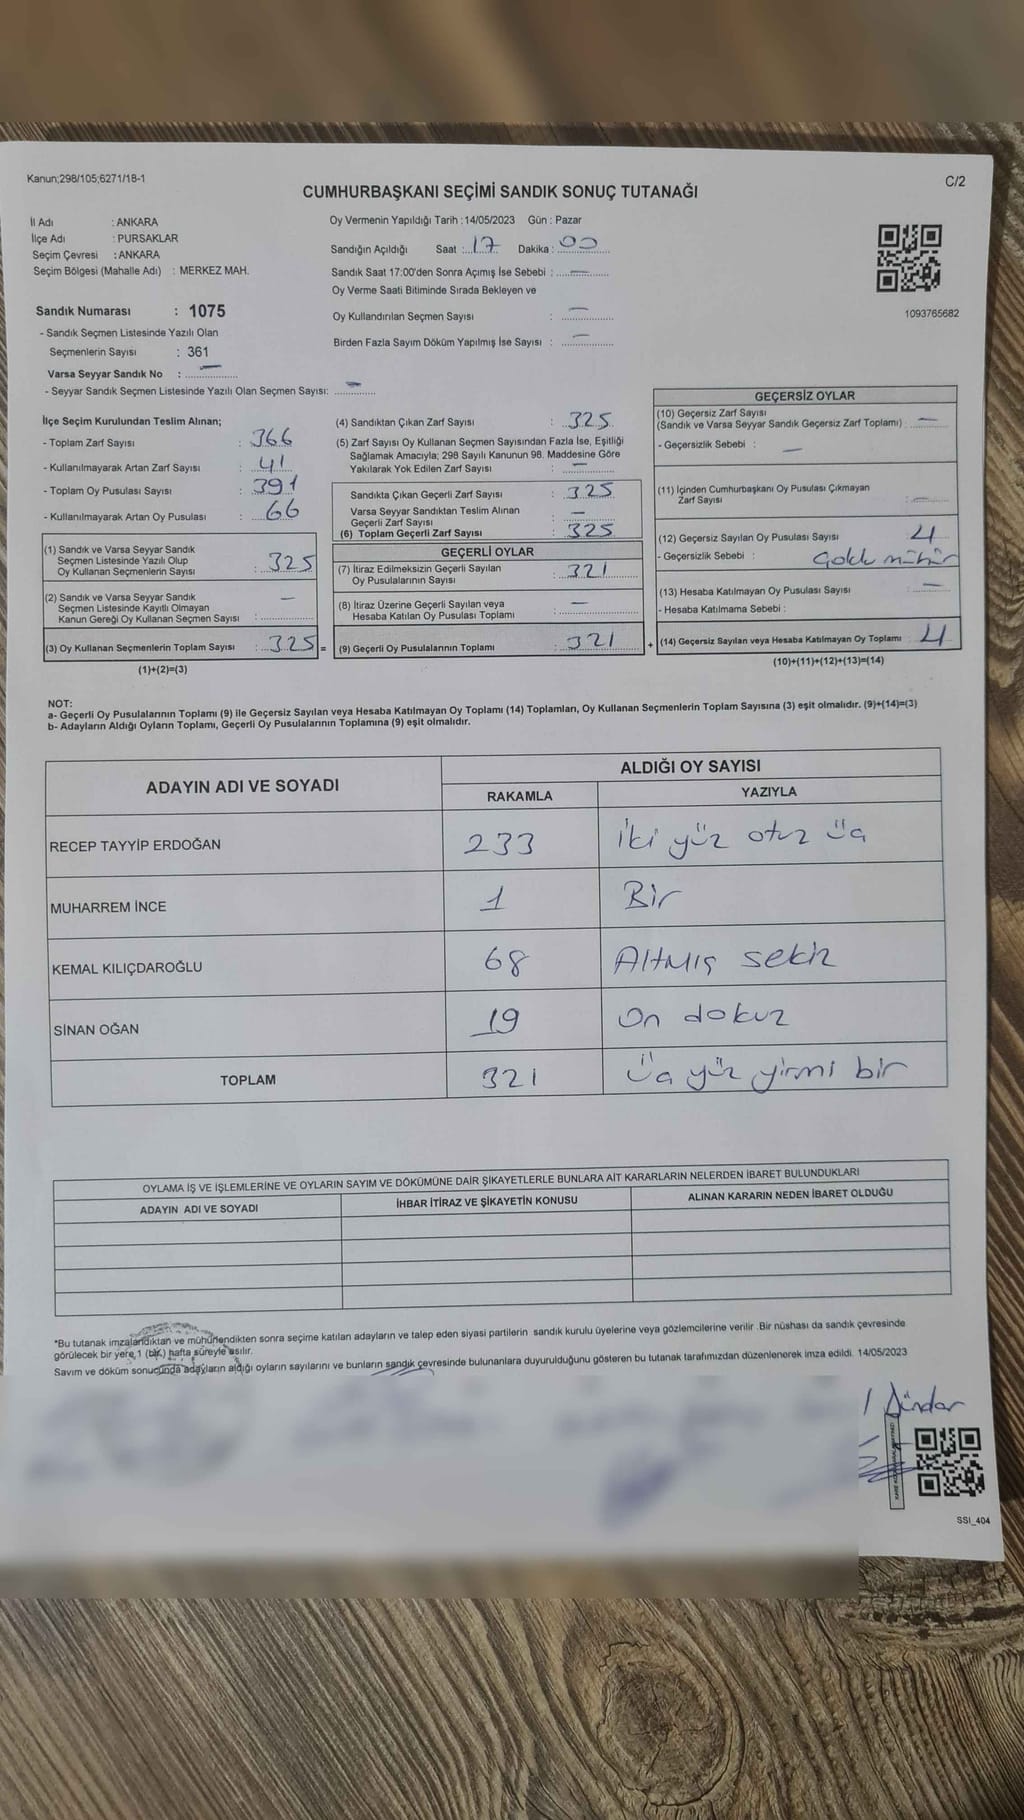 Kanun;298/105;6271/18-1
C/2
CUMHURBAŞKANI SEÇİMİ SANDIK SONUÇ TUTANAĞI
İl Adı : ANKARA
İlçe Adı : PURSAKLAR
Seçim Çevresi : ANKARA
Seçim Bölgesi (Mahalle Adı) : MERKEZ MAH.
Oy Vermenin Yapıldığı Tarih :14/05/2023 Gün : Pazar
Sandığın Açıldığı Saat :...17 Dakika :.00
Sandık Saat 17:00'den Sonra Açımış İse Sebebi : —
Oy Verme Saati Bitiminde Sırada Bekleyen ve
Oy Kullandırılan Seçmen Sayısı : —
Birden Fazla Sayım Döküm Yapılmış İse Sayısı : —
1093765682
Sandık Numarası : 1075
- Sandık Seçmen Listesinde Yazılı Olan
Seçmenlerin Sayısı : 361
Varsa Seyyar Sandık No : —
- Seyyar Sandık Seçmen Listesinde Yazılı Olan Seçmen Sayısı: —
İlçe Seçim Kurulundan Teslim Alınan;
- Toplam Zarf Sayısı : 366
- Kullanılmayarak Artan Zarf Sayısı : 41
- Toplam Oy Pusulası Sayısı : 391
- Kullanılmayarak Artan Oy Pusulası : 66
(1) Sandık ve Varsa Seyyar Sandık
Seçmen Listesinde Yazılı Olup
Oy Kullanan Seçmenlerin Sayısı : 325
(2) Sandık ve Varsa Seyyar Sandık —
Seçmen Listesinde Kayıtlı Olmayan
Kanun Gereği Oy Kullanan Seçmen Sayısı :
(3) Oy Kullanan Seçmenlerin Toplam Sayısı : 325 =
(1)+(2)=(3)
(4) Sandıktan Çıkan Zarf Sayısı : 325
(5) Zarf Sayısı Oy Kullanan Seçmen Sayısından Fazla İse, Eşitliği
Sağlamak Amacıyla; 298 Sayılı Kanunun 98. Maddesine Göre
Yakılarak Yok Edilen Zarf Sayısı : —
Sandıkta Çıkan Geçerli Zarf Sayısı : 325
Varsa Seyyar Sandıktan Teslim Alınan
Geçerli Zarf Sayısı : —
(6) Toplam Geçerli Zarf Sayısı : 325
GEÇERLİ OYLAR
(7) İtiraz Edilmeksizin Geçerli Sayılan
Oy Pusulalarının Sayısı : 321
(8) İtiraz Üzerine Geçerli Sayılan veya
Hesaba Katılan Oy Pusulası Toplamı : —
(9) Geçerli Oy Pusulalarının Toplamı : 321 +
GEÇERSİZ OYLAR
(10) Geçersiz Zarf Sayısı
(Sandık ve Varsa Seyyar Sandık Geçersiz Zarf Toplamı) : —
- Geçersizlik Sebebi : —
(11) İçinden Cumhurbaşkanı Oy Pusulası Çıkmayan
Zarf Sayısı : —
(12) Geçersiz Sayılan Oy Pusulası Sayısı : 4
- Geçersizlik Sebebi : mühür
(13) Hesaba Katılmayan Oy Pusulası Sayısı : —
- Hesaba Katılmama Sebebi :
(14) Geçersiz Sayılan veya Hesaba Katılmayan Oy Toplamı : 4
(10)+(11)+(12)+(13)=(14)
NOT:
a- Geçerli Oy Pusulalarının Toplamı (9) ile Geçersiz Sayılan veya Hesaba Katılmayan Oy Toplamı (14) Toplamları, Oy Kullanan Seçmenlerin Toplam Sayısına (3) eşit olmalıdır. (9)+(14)=(3)
b- Adayların Aldığı Oyların Toplamı, Geçerli Oy Pusulalarının Toplamına (9) eşit olmalıdır.
ADAYIN ADI VE SOYADI ALDIĞI OY SAYISI
RAKAMLA YAZIYLA
RECEP TAYYİP ERDOĞAN 233 iki yüz otuz üç
MUHARREM İNCE 1 Bir
KEMAL KILIÇDAROĞLU 68 Altmış sekiz
SİNAN OĞAN 19 On dokuz
TOPLAM 321 Üç yüz yirmi bir
OYLAMA İŞ VE İŞLEMLERİNE VE OYLARIN SAYIM VE DÖKÜMÜNE DAİR ŞİKAYETLERLE BUNLARA AİT KARARLARIN NELERDEN İBARET BULUNDUKLARI
ADAYIN ADI VE SOYADI İHBAR İTİRAZ VE ŞİKAYETİN KONUSU ALINAN KARARIN NEDEN İBARET OLDUĞU
*Bu tutanak imzalandıktan ve mühürlendikten sonra seçime katılan adayların ve talep eden siyasi partilerin sandık kurulu üyelerine veya gözlemcilerine verilir .Bir nüshası da sandık çevresinde
görülecek bir yere 1 (bir) hafta süreyle asılır.
Sayım ve döküm sonucunda adayların aldığı oyların sayılarını ve bunların sandık çevresinde bulunanlara duyurulduğunu gösteren bu tutanak tarafımızdan düzenlenerek imza edildi. 14/05/2023
Dündar
SSI_404